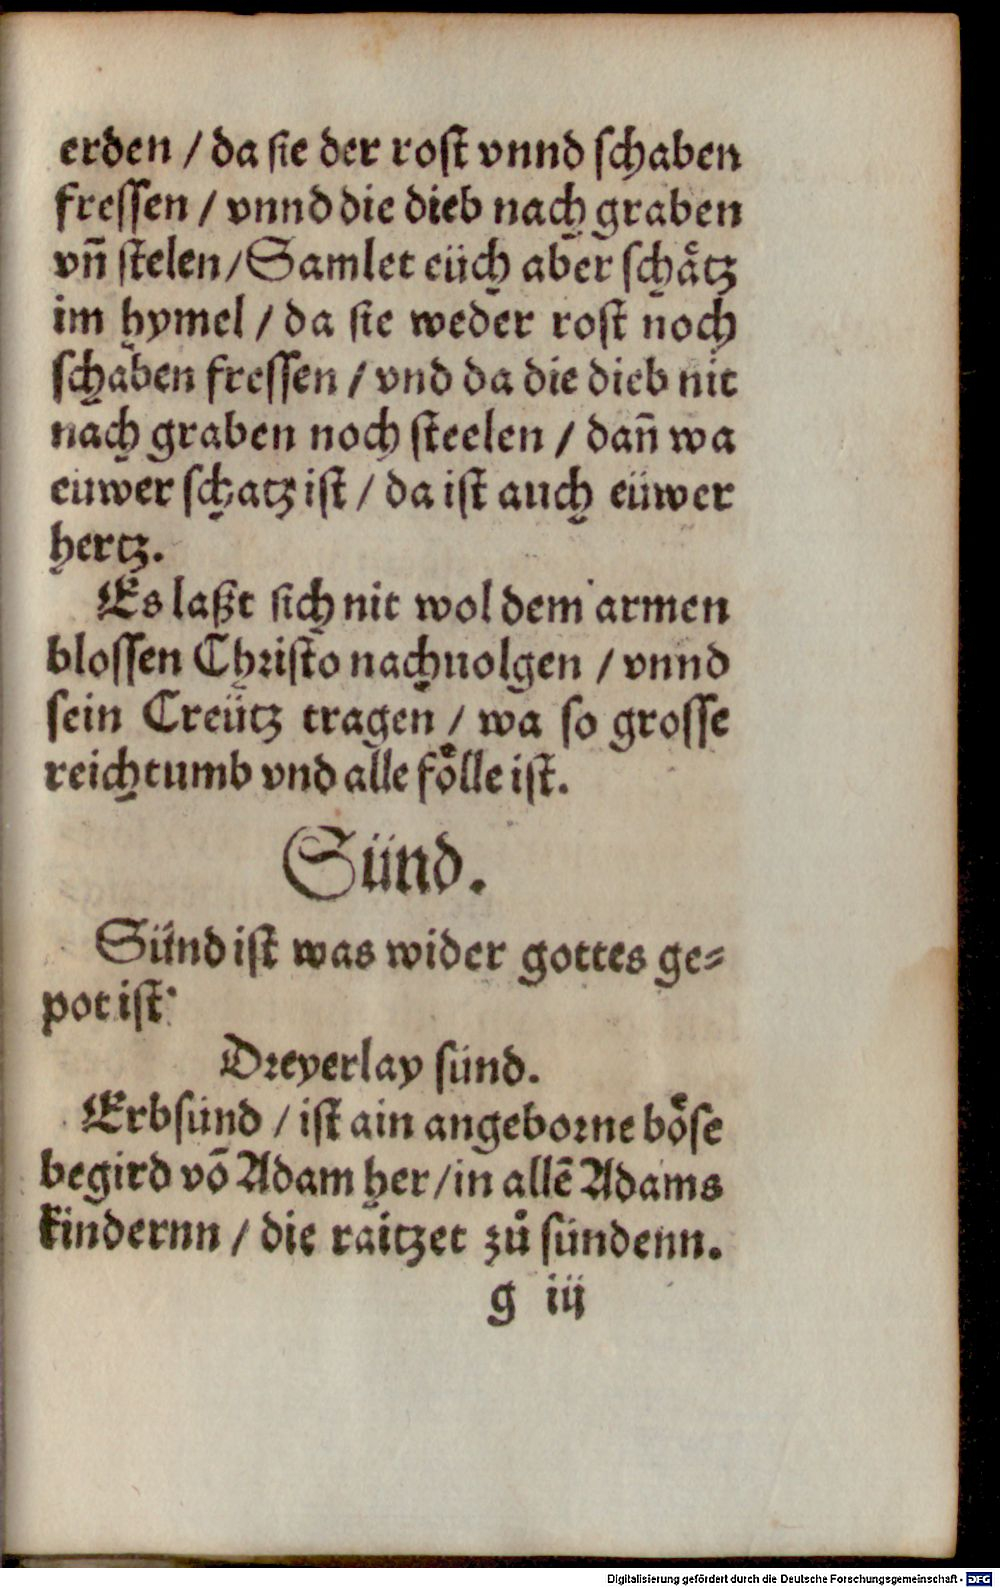 erden / da sie der rost vnnd schaben
fressen / vnnd die dieb nach graben
vñ stelen / Samlet eüch aber schåtz
im hymel / da sie weder rost noch
schaben fressen / vnd da die dieb nit
nach graben noch steelen / dañ wa
euwer schatz ist / da ist auch eüwer
hertz.
Es laßt sich nit wol dem armen
blossen Christo nachuolgen / vnnd
sein Creütz tragen / wa so grosse
reichtumb vnd alle foͤlle ist.
Sünd.
Sünd ist was wider gottes ge-
pot ist.
Dreyerlay sünd.
Erbsünd / ist ain angeborne boͤse
begird võ Adam her / in allẽ Adams
kindernn / die raitzet zů sündenn.
g iij
Digitalisierung gefördert durch die Deutsche Forschungsgemeinschaft - DFG